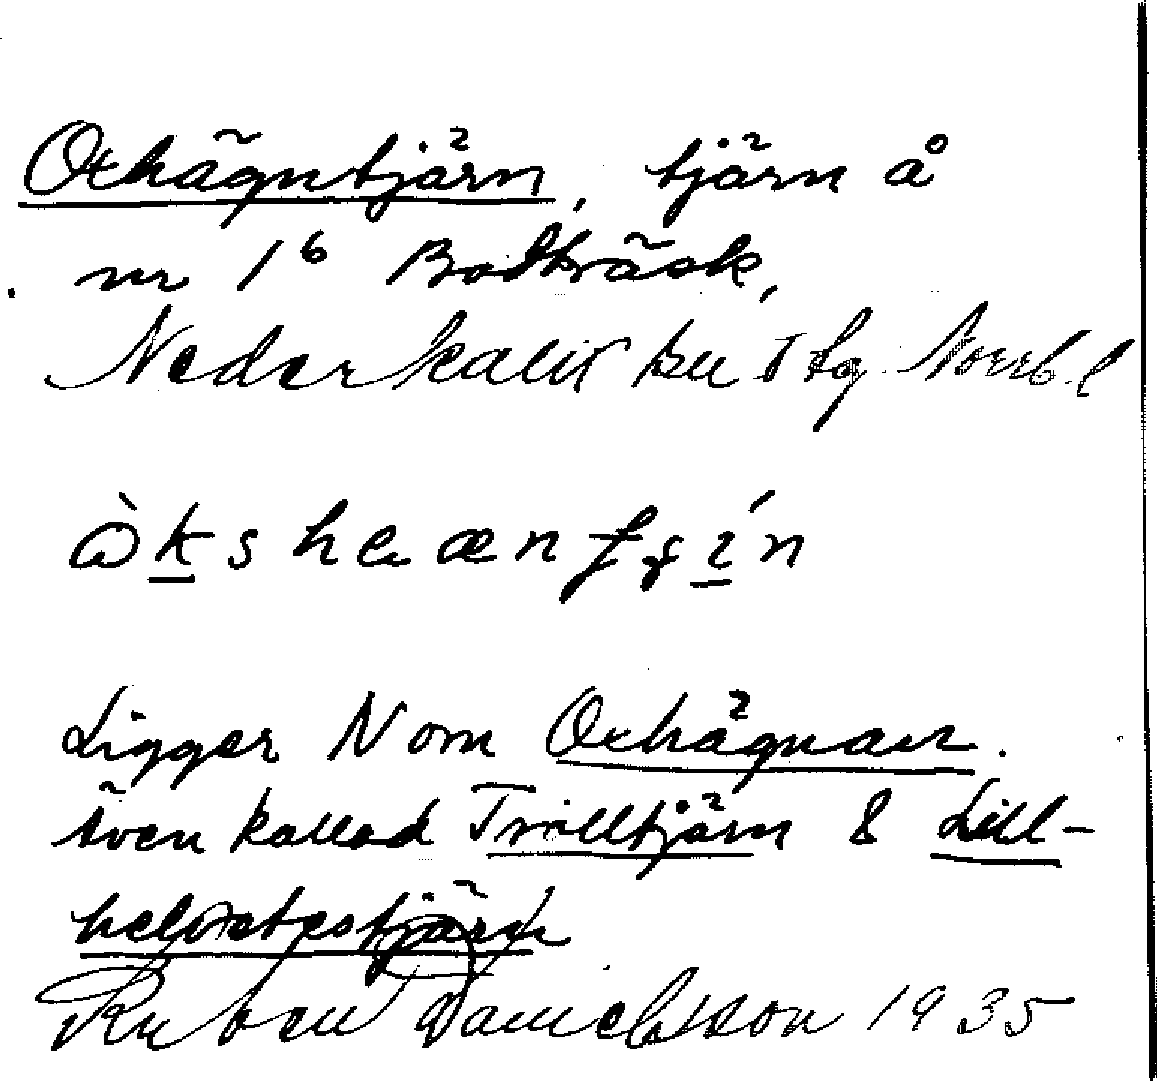 Oxhägntjärn, tjärn å
nr 1⁶ Bodträsk,
Nederkalix sn Tfg Norrb. l
Ligger N om Oxhägnan.
Även kallad Trolltjärn & Lill-
helvetestjärn
Ruben Danielsson 1935